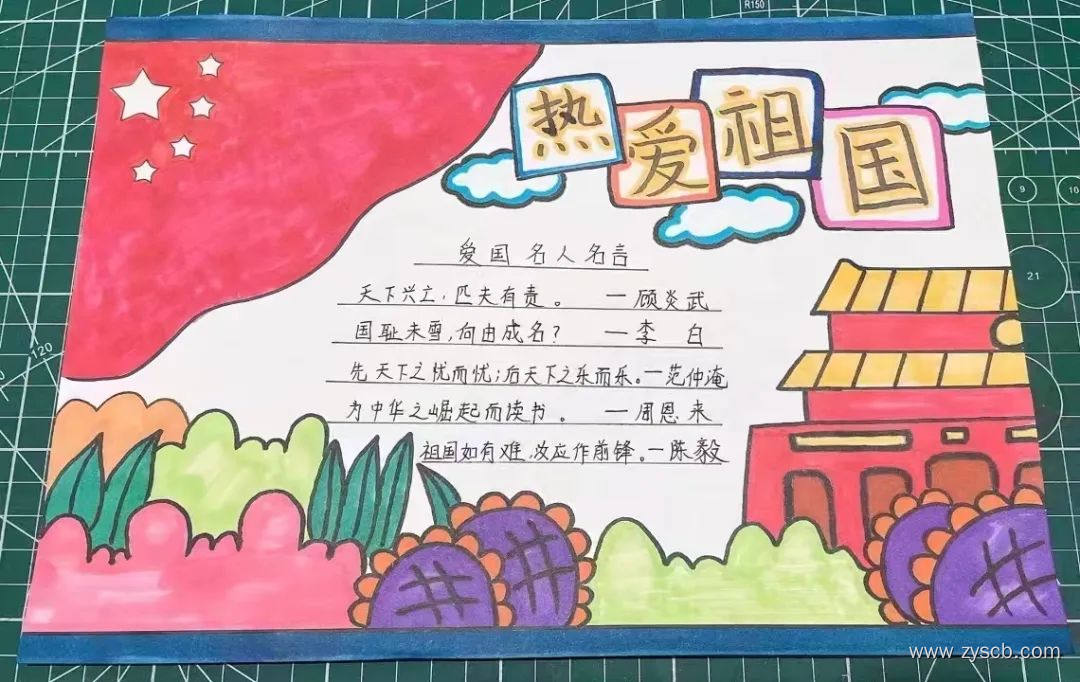 R150
热爱祖国
9
10
21
120
爱国名人名言
天下兴亡,匹夫有责。 — 顾炎武
国耻未雪,何由成名? — 李 白
先天下之忧而忧;后天下之乐而乐。—范仲淹
为中华之崛起而读书。 — 周恩来
祖国如有难,汝应作前锋。—陈毅
www.zyscb.com